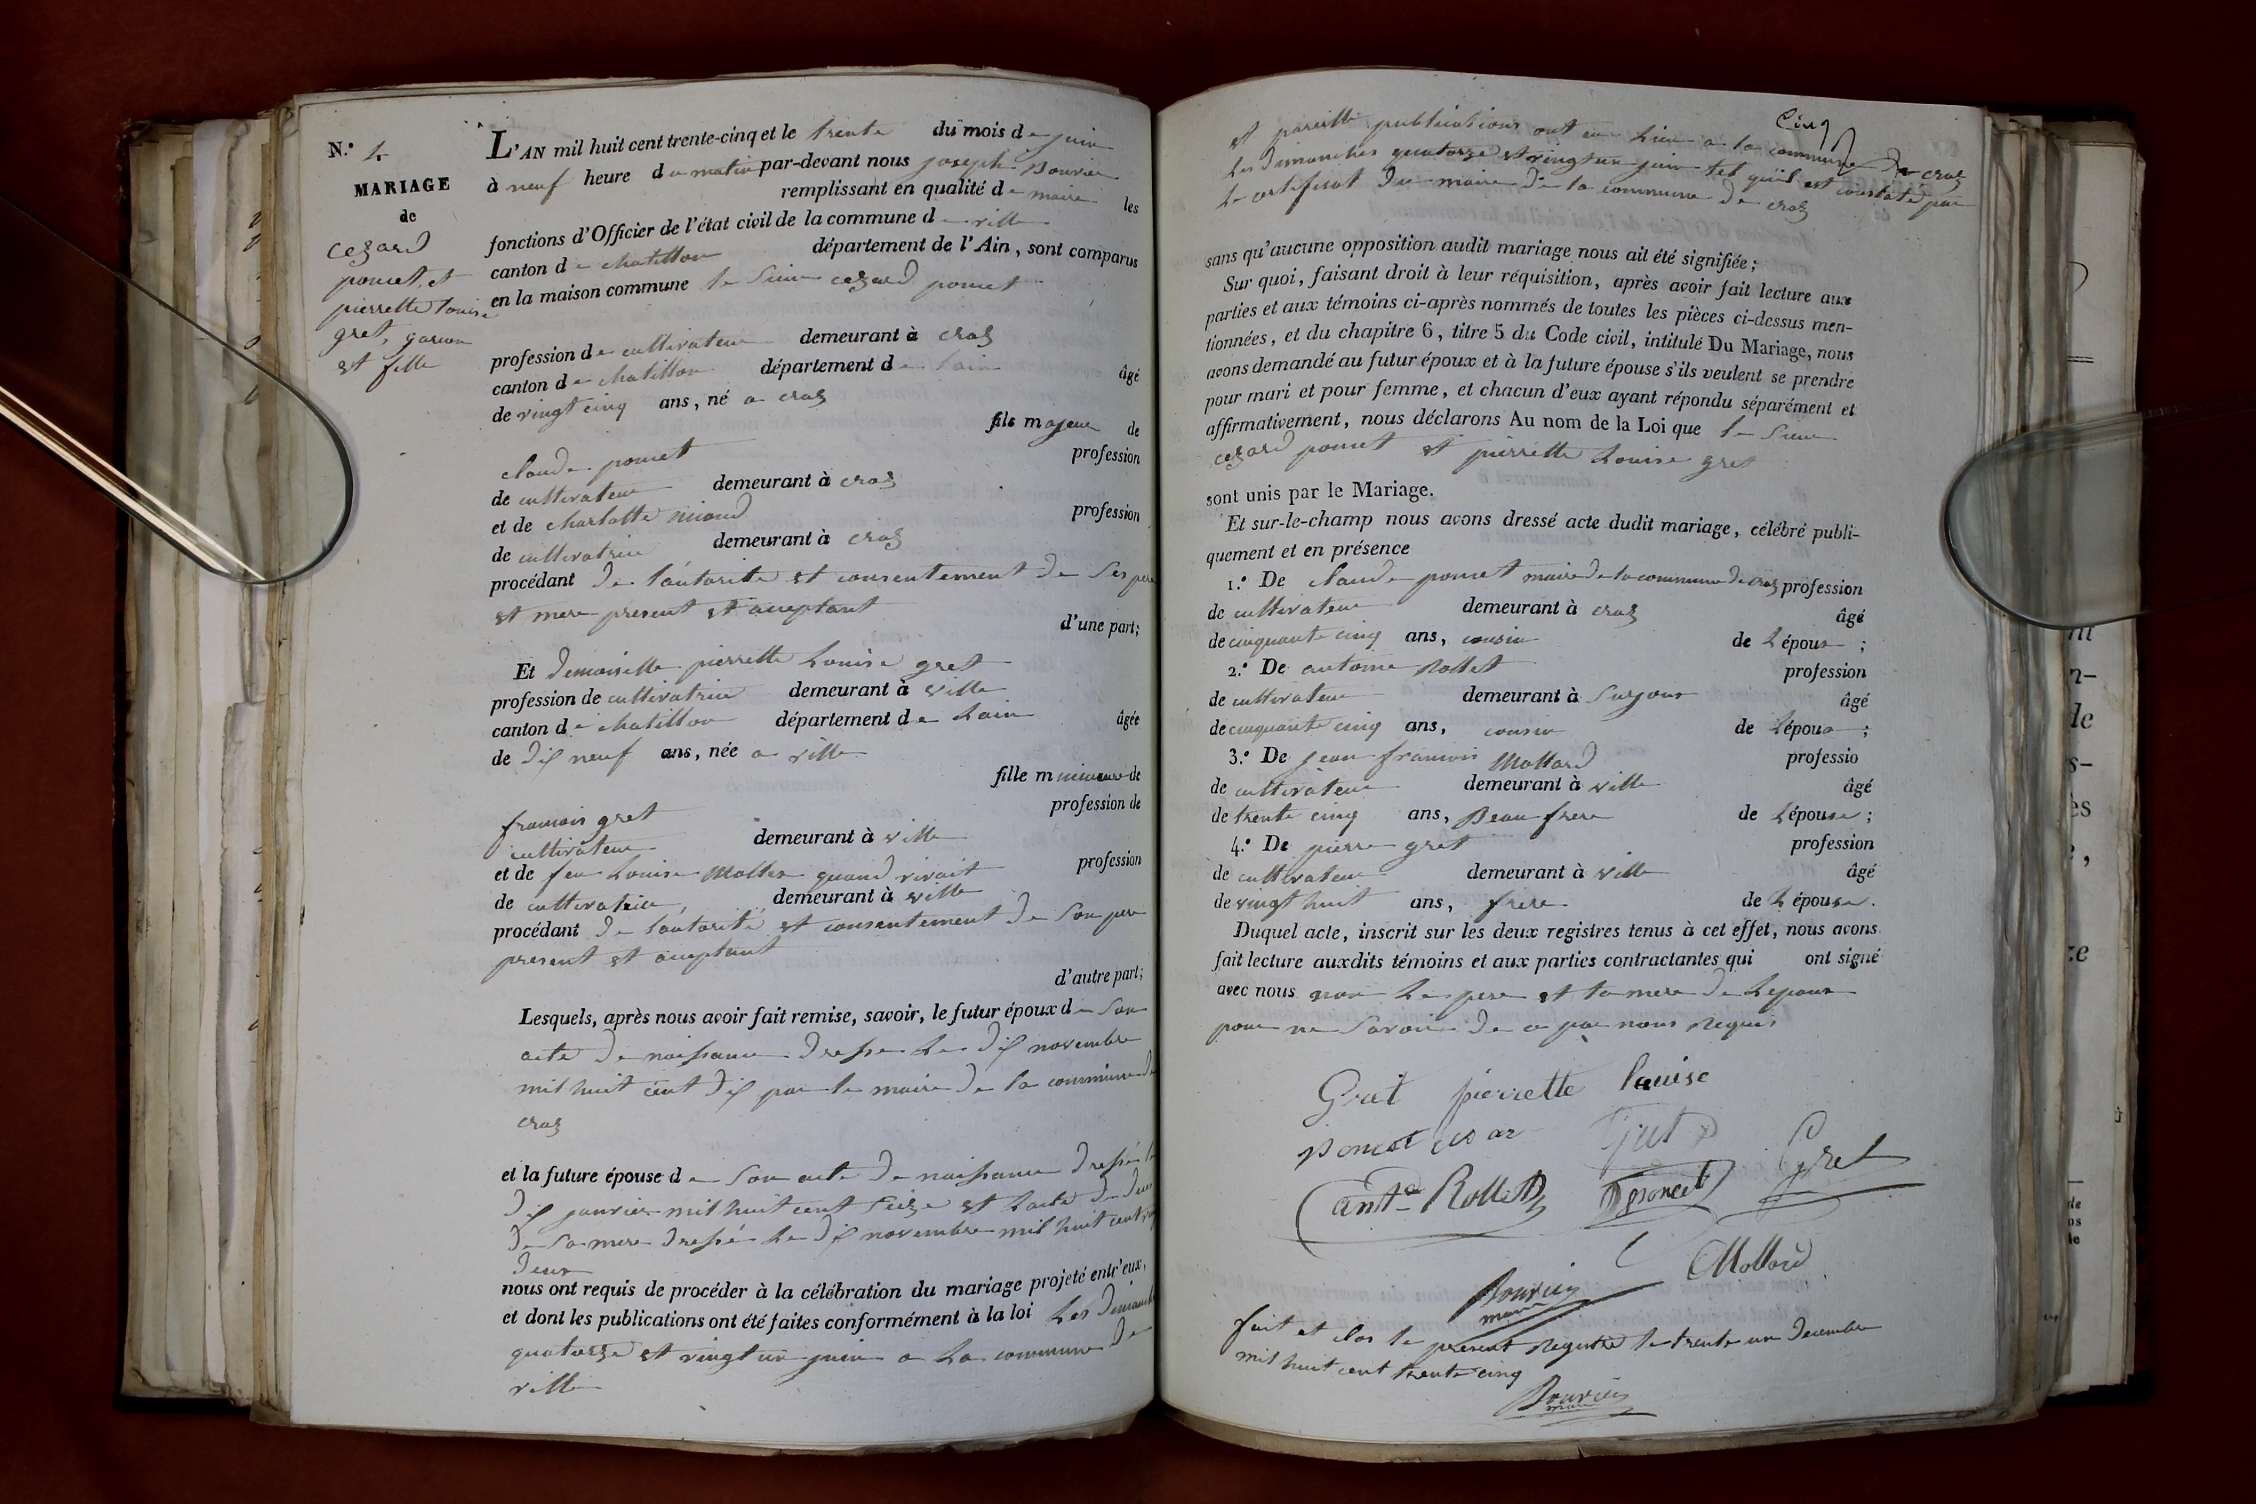 N.° 4
MARIAGE
de
cezard
poncet, et
pierrette louise
gret, garcon
et fille
L'AN mil huit cent trente-cinq et le trente du mois de juin
à neuf heure du matin par-devant nous joseph Bouvier
remplissant en qualité de maire les
fonctions d'Officier de l'état civil de la commune de ville
canton de chatillon département de l'Ain, sont comparus
en la maison commune le Sieur cezard poncet
profession de cultivateur demeurant à craz
canton de chatillon département de lain âgé
de vingt cinq ans, né a craz
fils majeur de
claude poncet profession
de cultivateur demeurant à craz
et de charlotte profession
de cultivatrice demeurant à craz
procédant de lautorité et consentement de Ses pere
et mere present et acceptant
d'une part;
Et demoiselle pierrette Louise gret
profession de cultivatrice demeurant à ville
canton de chatillon département de Lain âgée
de dix neuf ans, née a ville
fille mineure de
francois gret profession de
cultivateur demeurant à ville
et de feu Louise quand vivait profession
de cultivatrice, demeurant à ville
procédant de lautorité et consentement de Son pere
present et aceptant
d'autre part;
Lesquels, après nous avoir fait remise, savoir, le futur époux de Son
acte de naissance dressé Le dix novembre
mil huit cent dix par le maire de la commune de
craz
et la future épouse de Son acte de naissance dressé le
dix janvier mil huit cent Seize et Lacte de
de Sa mere dressé Le dix novembre mil huit cent
deux
nous ont requis de procéder à la célébration du mariage projeté entr'eux,
et dont les publications ont été faites conformément à la loi Les dimanche
quatorze et vingt un juin a La commune de
ville
Cinq
et pareille publications ont eu Lieu a la commune de craz
Les dimanches quatorze et vingt un juin tel qu'il est constaté par
Le certificat du maire de la commune de craz
sans qu'aucune opposition audit mariage nous ait été signifiée;
Sur quoi, faisant droit à leur réquisition, après avoir fait lecture aux
parties et aux témoins ci-après nommés de toutes les pièces ci-dessus men-
tionnées, et du chapitre 6, titre 5 du Code civil, intitulé Du Mariage, nous
avons demandé au futur époux et à la future épouse s'ils veulent se prendre
pour mari et pour femme, et chacun d'eux ayant répondu séparément et
affirmativement, nous déclarons Au nom de la Loi que le Sieur
cezard poncet et pierrette Louise gret
sont unis par le Mariage.
Et sur-le-champ nous avons dressé acte dudit mariage, célébré publi-
quement et en présence
1.° De claude poncet maire de la commune de craz profession
de cultivateur demeurant à craz âgé
de cinquante cinq ans, cousin de L'époux ;
2.° De antoine Rollet profession
de cultivateur demeurant à Surjoux âgé
de cinquante cinq ans, cousin de L'époux ;
3.° De jean francois Mollard professio
de cultivateur demeurant à ville âgé
de trente cinq ans, Beau frere de L'épouse ;
4.° De pierre gret profession
de cultivateur demeurant à ville âgé
de vingt huit ans, frere de L'épouse.
Duquel acte, inscrit sur les deux registres tenus à cet effet, nous avons
fait lecture auxdits témoins et aux parties contractantes qui ont signé
avec nous non Le pere et la mere de Lepoux
pour ne Savoir de ce par nous Requis
Gret pierrette louise
poncet cesar Gret
Gret
ante Rollet poncet
Mollard
Bouvier
maire
fait et clos le present Registre le trente un decembre
mil huit cent trente cinq
Bouvier
maire